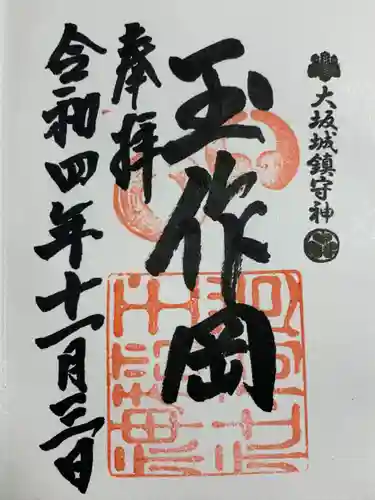 大坂城鎮守神
玉作岡
奉拝
令和四年十一月三日